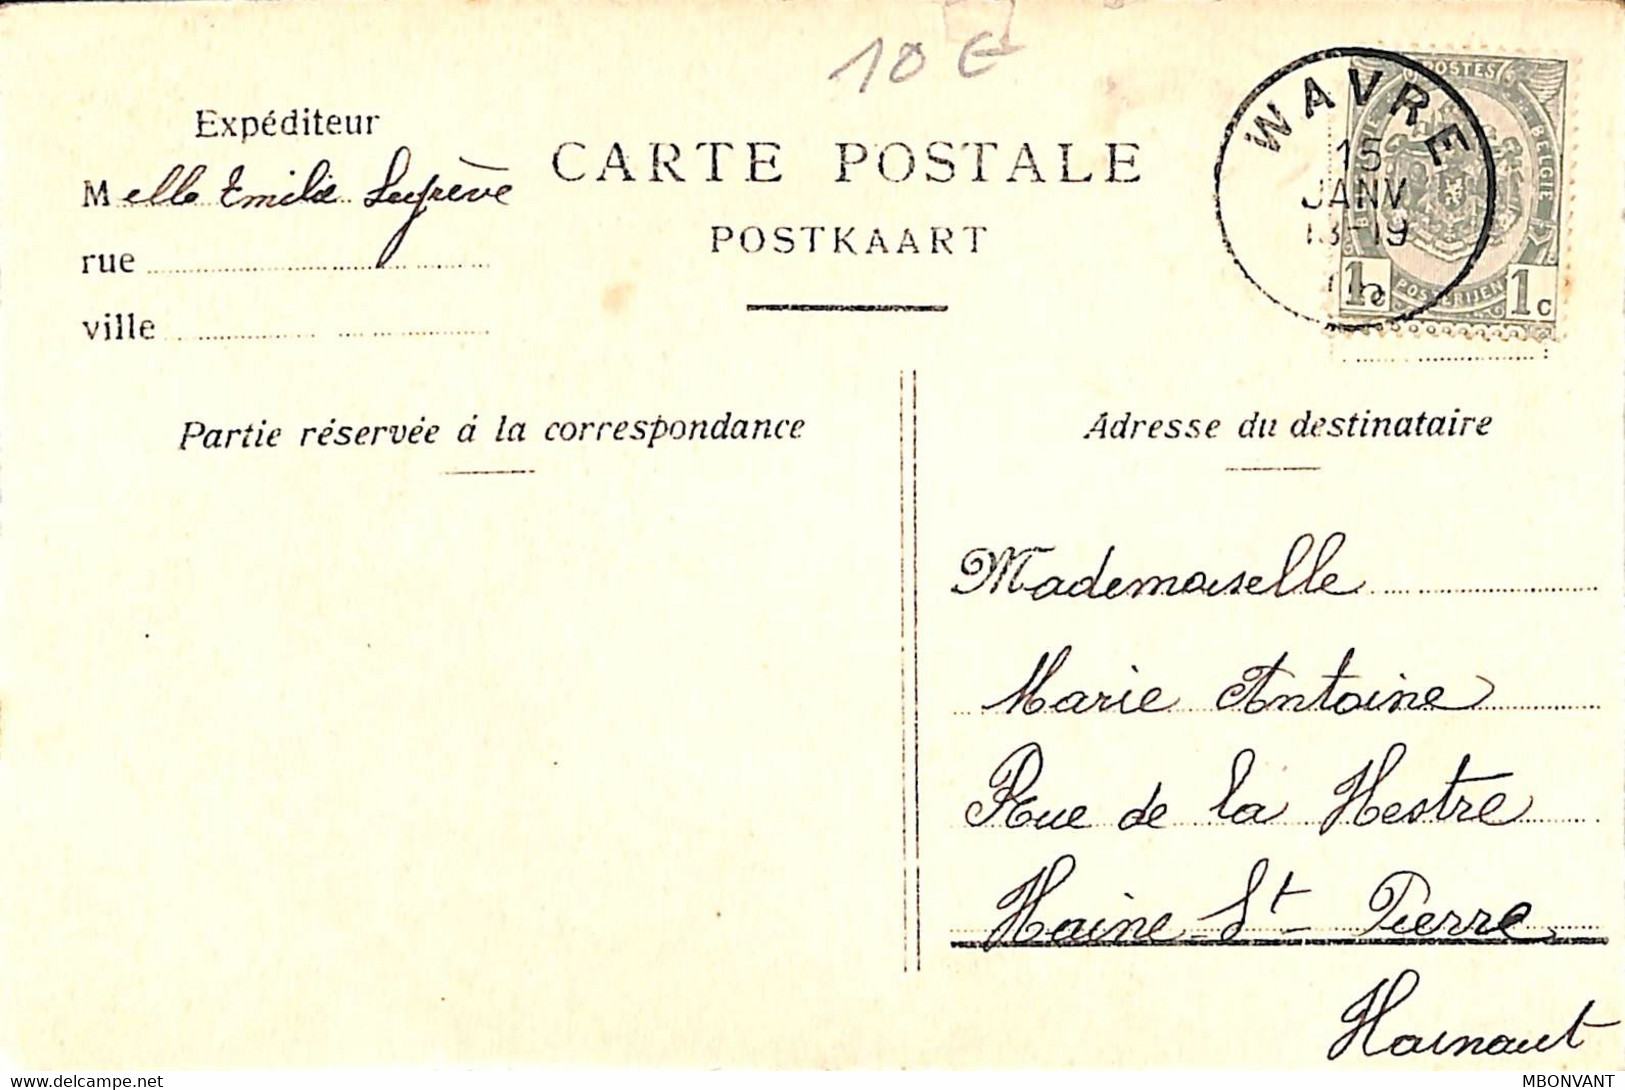 10 €
Expéditeur
Melle Emilie
rue
ville
CARTE POSTALE
POSTKAART
WAVRE
15
JANV
13-19
POSTES
BELGIE
POSTERIJEN
1c 1c
Partie réservée à la correspondance
Adresse du destinataire
Mademoiselle
Marie Antoine
Rue de la Hestre
Haine-St-Pierre
Hainaut
MBONVANT